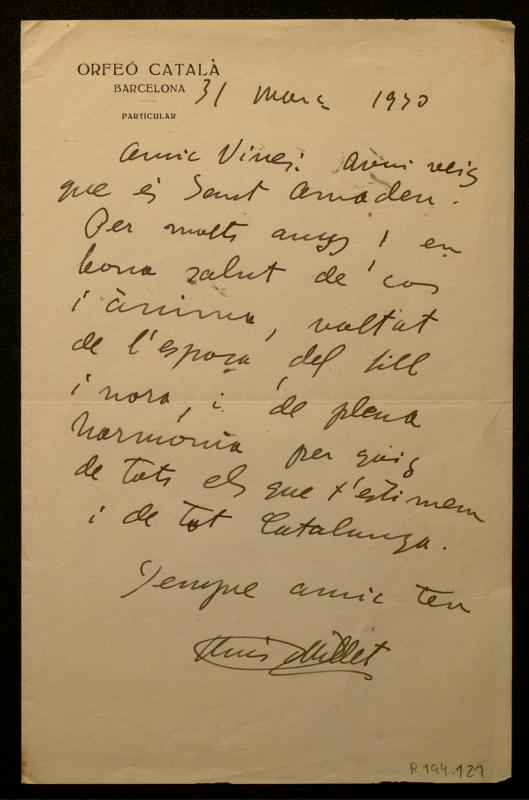 ORFEÓ CATALÀ
BARCELONA
PARTICULAR
31 març 1930
Amic Vives: Avui veig
que és Sant Amadeu.
Per molts anys! en
bona salut de cos
i ànima, voltat
de l'esposa del fill
i nora, i de plena
harmonia per goig
de tots els que t'estimem
i de tot Catalunya.
Sempre amic teu
Lluis Millet
R 194.127